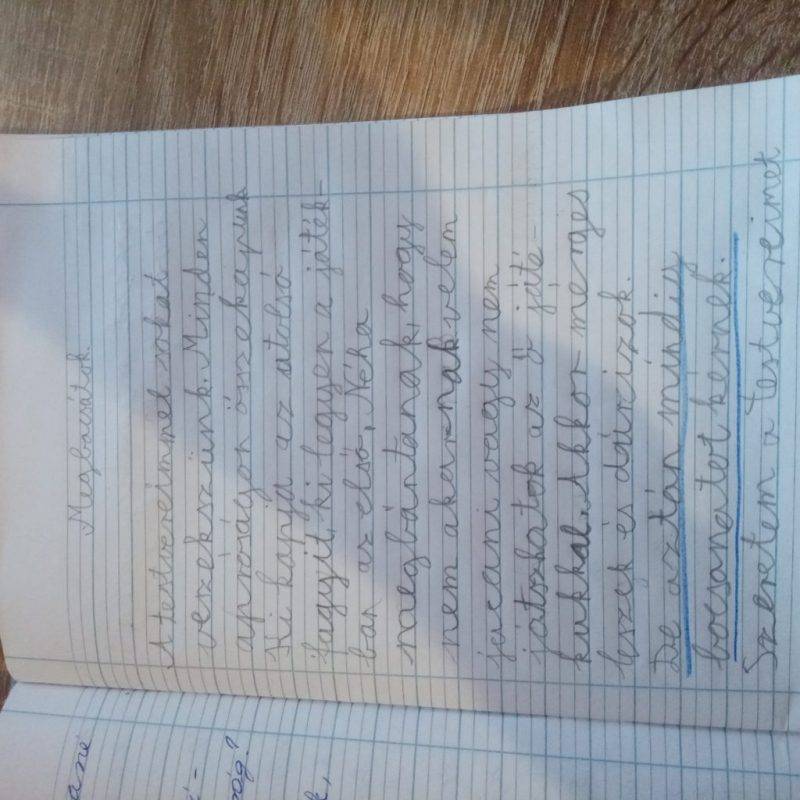 Megbocsátok.
A testvéreimmel sokat
veszekszünk. Minden
apróságon összekapunk
Ki kapja az utolsó
fagyit, ki legyen a játék-
ban az első. Néha
megbántanak, hogy
nem akarnak velem
jácani vagy nem
játszhatok az ő játé-
kukkal. Akkor mérges
leszek és dúrcizok.
De aztán mindig
bocsánatot kérnek.
Szeretem a testvéreimet
ane
é-
ság?
k,